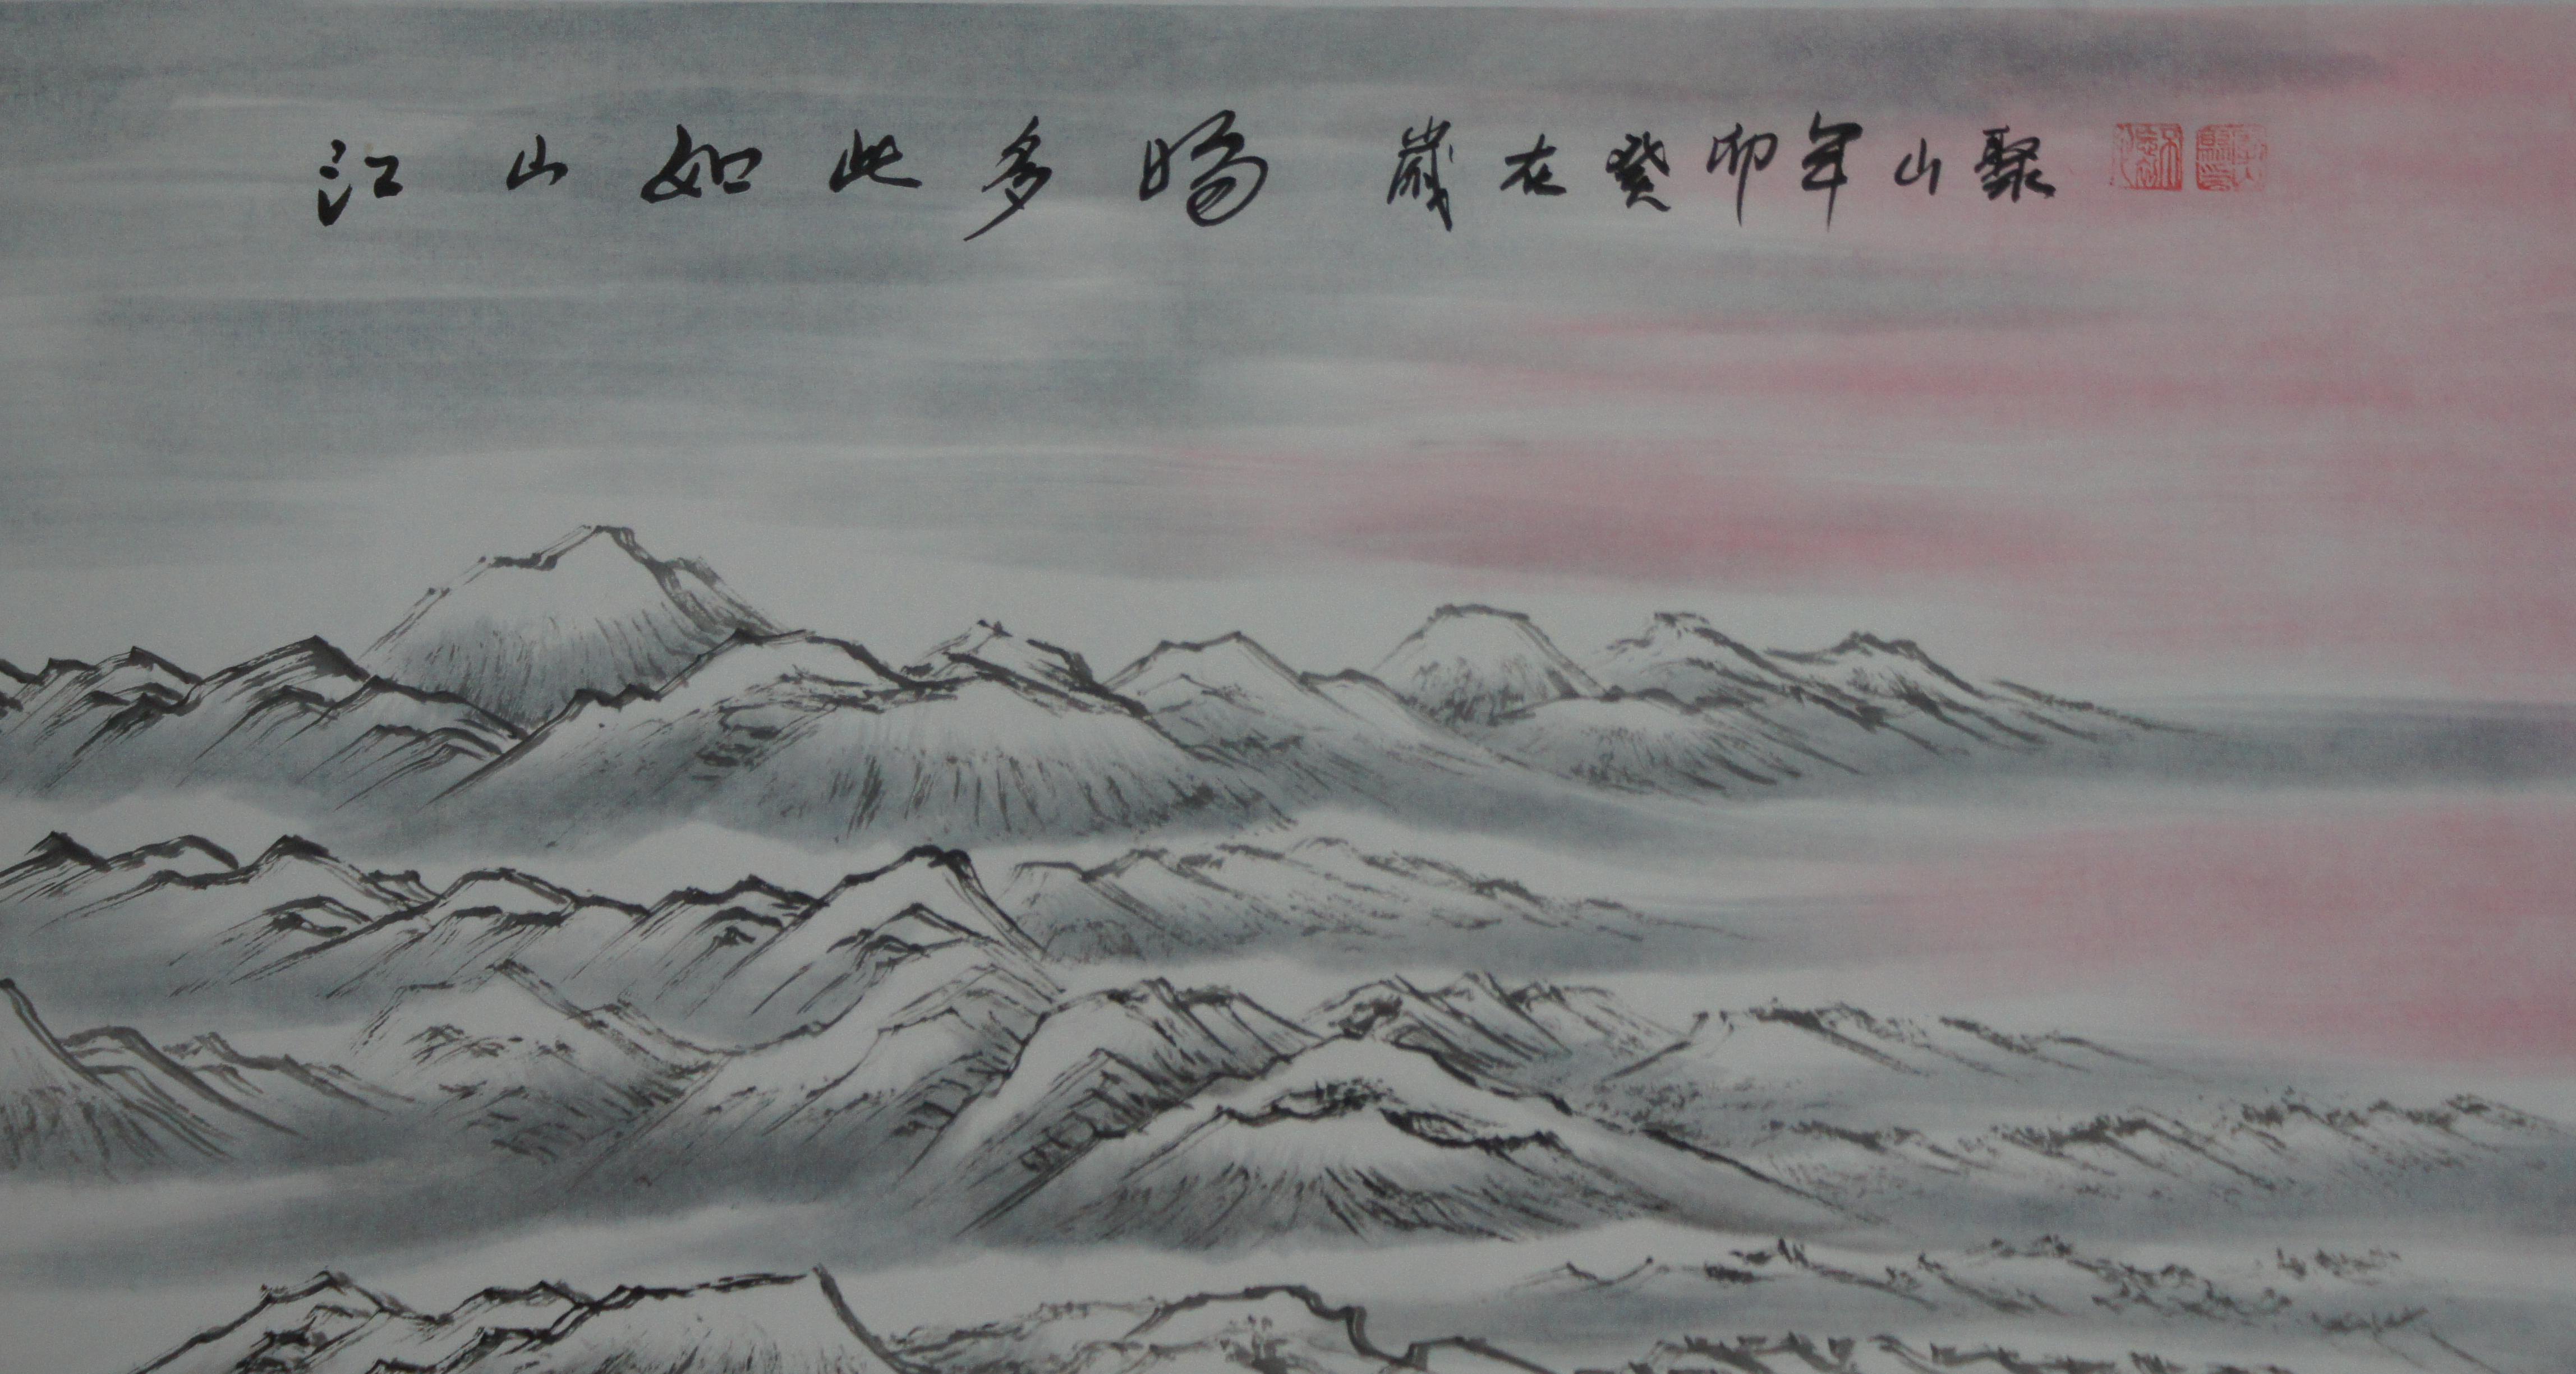 江山如此多嬌 歲在癸卯年山聚